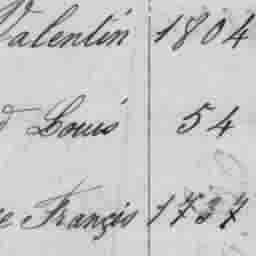 Valentin 1804
Louis 54
François 1737